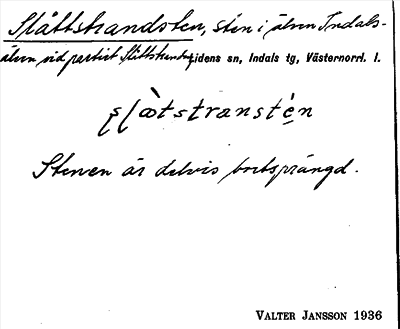 Slåttshandsten, sten i älven Indals-
älven vid partiet Slåttshandet, Lidens sn, Indals tg, Västernorrl. l.
Stenen är delvis bortsprängd.
VALTER JANSSON 1936